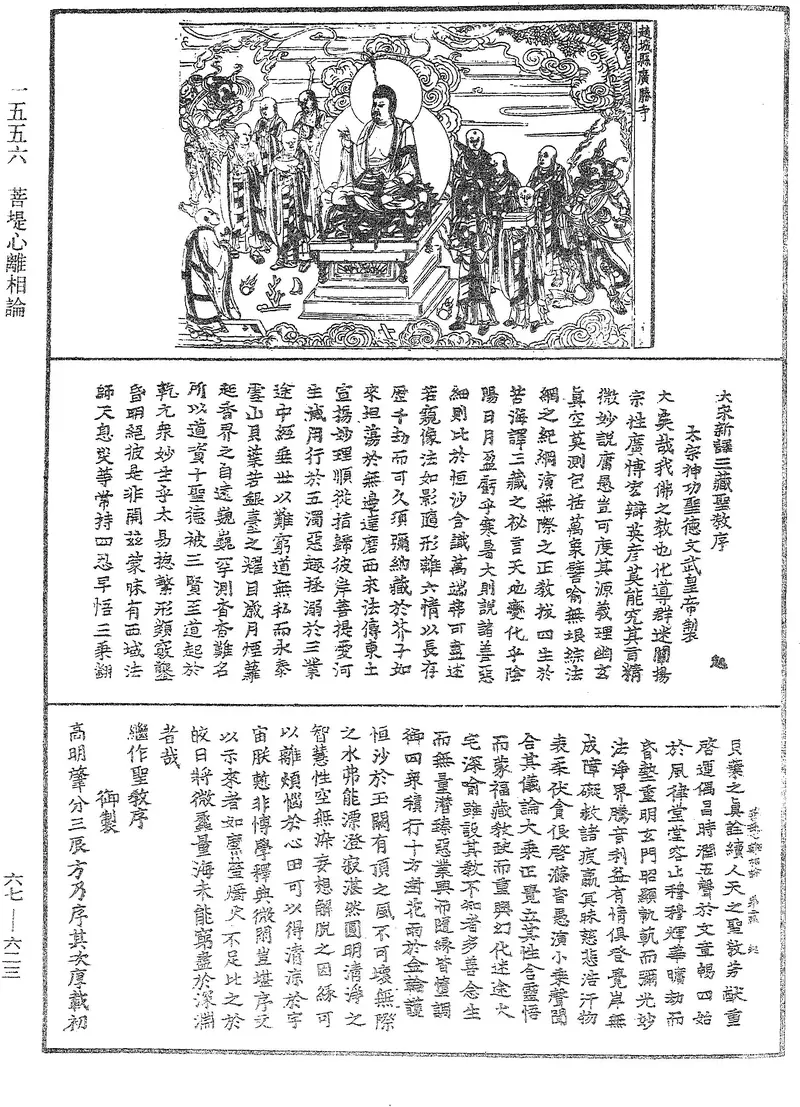 趙城縣廣勝寺
大宋新譯三藏聖教序
太宗神功聖德文武皇帝製
大矣哉我佛之教也化導群迷闡揚
宗性廣博宏辯英彥莫能究其旨精
微妙說庸愚豈可度其源義理幽玄
真空莫測包括萬象譬喻無垠綜法
網之紀綱演無際之正教拔四生於
苦海譯三藏之祕言天地變化乎陰
陽日月盈虧乎寒暑大則說諸善惡
細則比於恒沙含識萬端弗可盡述
若窺像法如影隨形離六情以長存
歷千劫而可久須彌納藏於芥子如
來坦蕩於無邊達磨西來法傳東土
宣揚妙理順從指歸彼岸菩提愛河
生滅用行於五濁惡趣拯溺於三業
途中經垂世以難窮道無私而永泰
雪山貝葉若銀臺之耀目歲月煙蘿
起香界之自遠巍巍罕測杳杳難名
所以道資十聖德被三賢至道起於
乾元衆妙生乎太易揔繁形類竅鑿
昏明絕彼是非開茲蒙昧有西域法
師天息災等常持四忍早悟三乘翻
貝葉之真詮續人天之聖教芳猷重
啓運偶昌時潤五聲於文章暢四始
於風律堂堂容止穆穆輝華曠劫而
昏墊重明玄門昭顯軌範而彌光妙
法淨界騰音利益有情俱登覺岸無
成障礙救諸疲羸冥昧慈悲浩汗物
表柔伏貪佷啓滌昏愚演小乘聲聞
合其儀論大乘正覺立其性含靈悟
而蒙福藏教缺而重興幻代迷途火
宅深喻雖設其教不知者多善念生
而無量潛臻惡業興而隨緣皆墮調
御四衆積行十方澍花雨於金輪護
恒沙於玉闕有頂之風不可壞無際
之水弗能漂澄寂湛然圓明清淨之
智慧性空無染妄想解脫之因緣可
以離煩惱於心田可以得清涼於宇
宙朕慙非博學釋典微閑豈堪序文
以示來者如縻螢爝火不足比之於
皎日將微蠡量海未能窮盡於深淵
者哉
繼作聖教序
御製
高明肇分三辰方乃序其次厚載初
一五五六　菩堤心離相論
六七—六二三